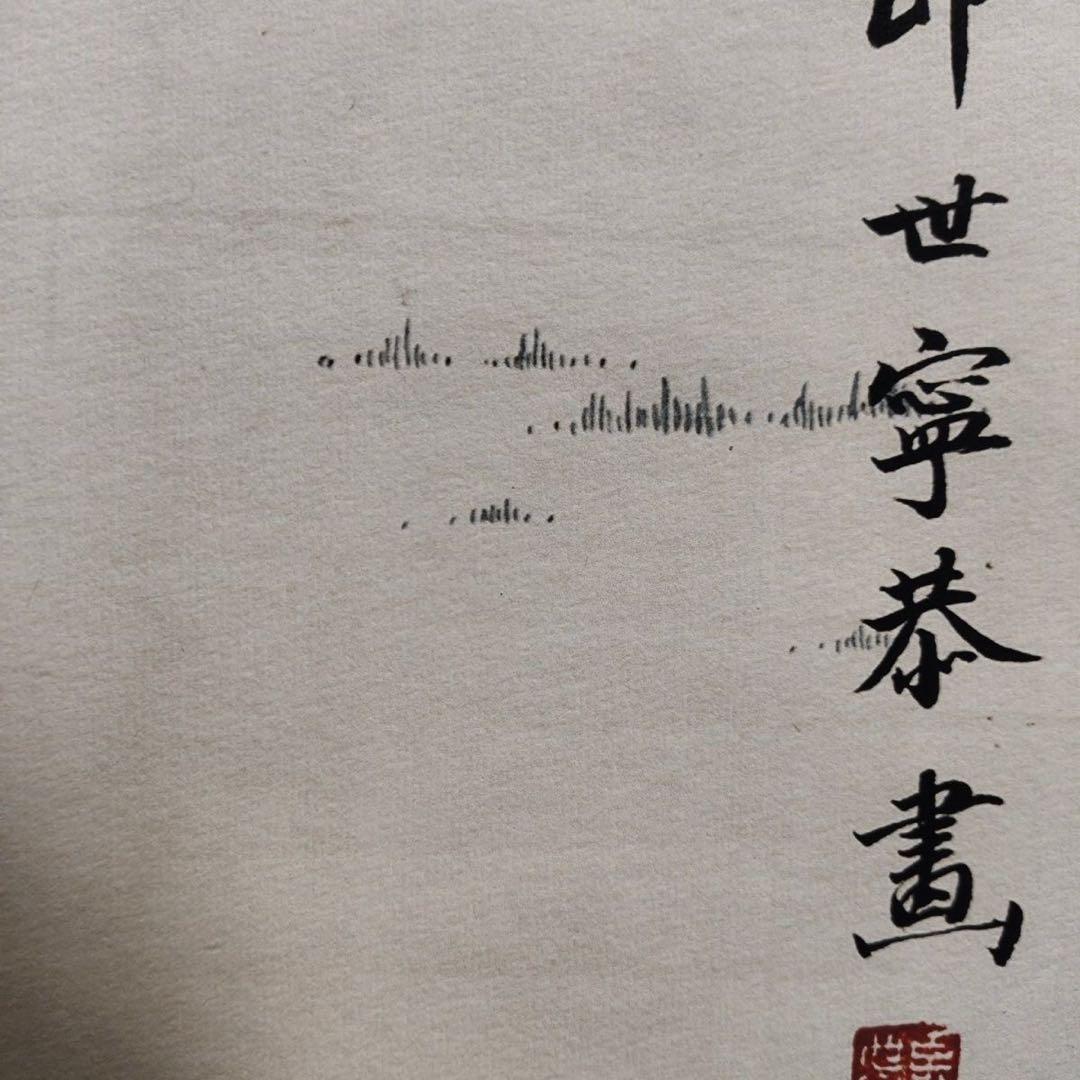 世寧恭畫